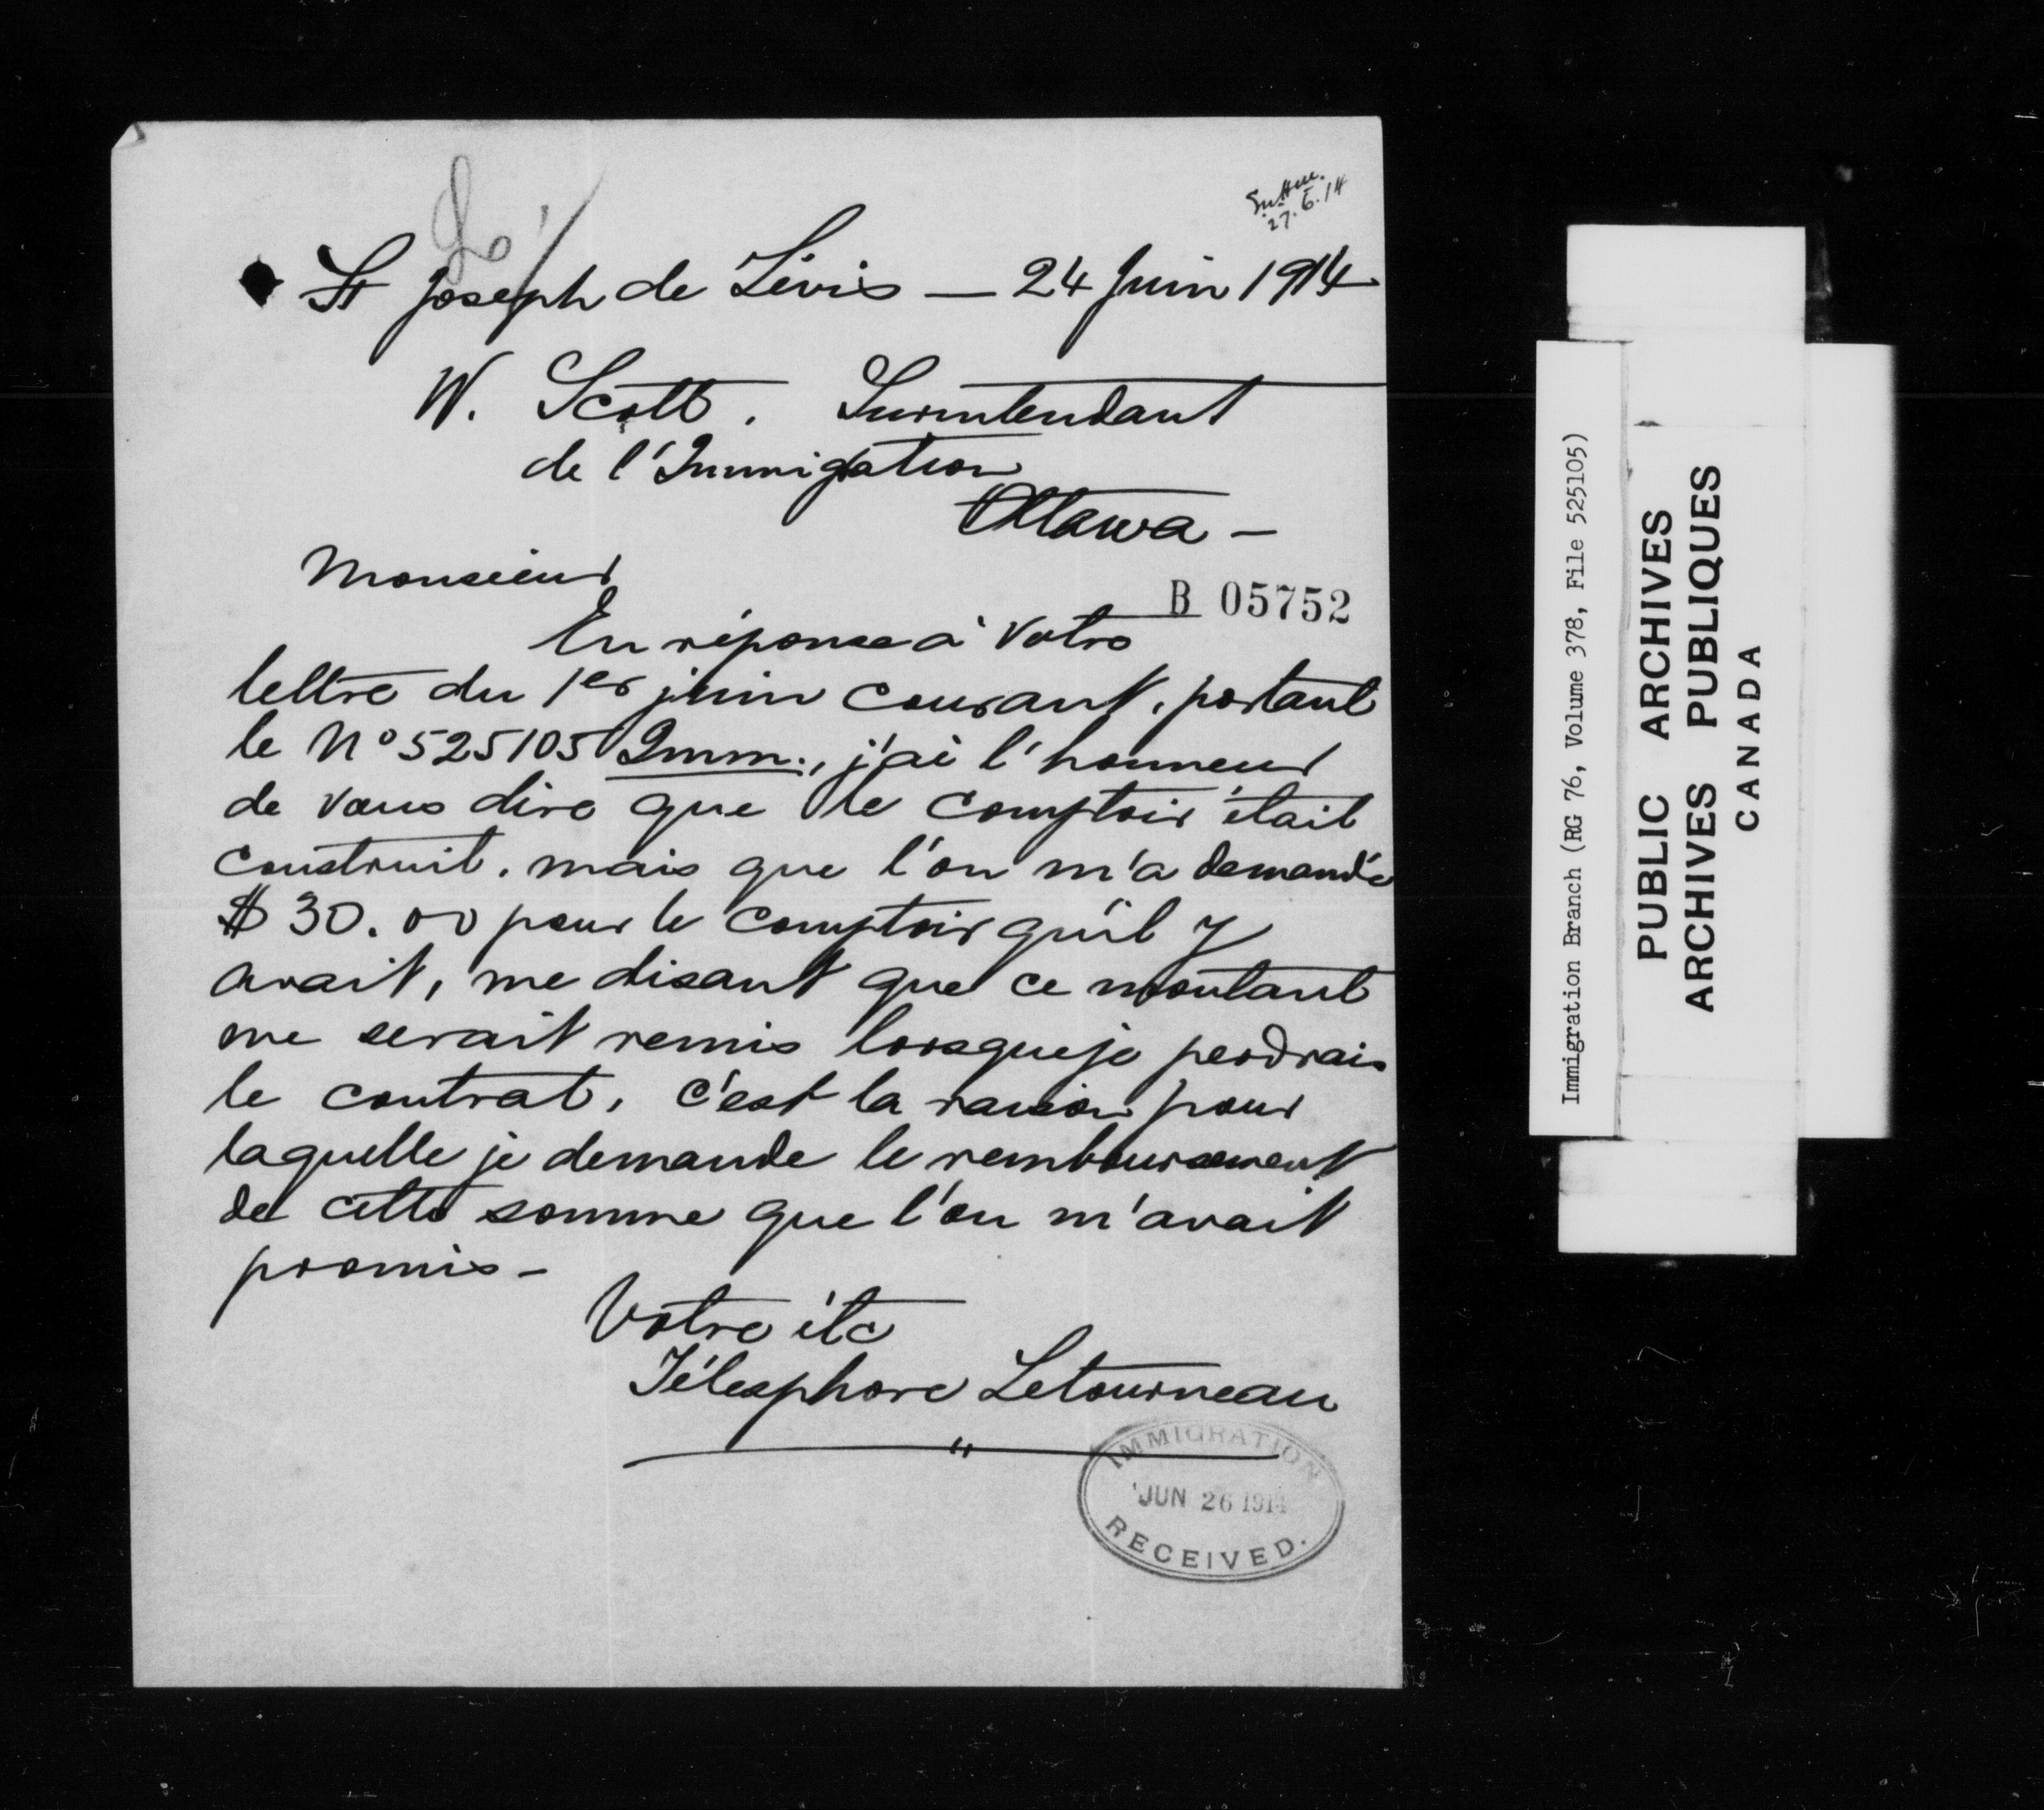 27.6.14
St Joseph de Lévis — 24 Juin 1914
W. Scott. Surintendant
de l'Immigration
Ottawa —
Monsieur
B 05752
En réponse à votre
lettre du 1er juin courant, portant
le No 525105 Imm., j'ai l'honneur
de vous dire que le comptoir était
construit. mais que l'on m'a demandé
$ 30.00 pour le comptoir qu'il y
avait, me disant que ce montant
me serait remis lorsque je perdrais
le contrat. c'est la raison pour
laquelle je demande le remboursement
de cette somme que l'on m'avait
promis -
Votre etc
Télesphore Letourneau
"
IMMIGRATION
JUN 26 1914
RECEIVED.
Immigration Branch (RG 76, Volume 378, File 525105)
PUBLIC ARCHIVES
ARCHIVES PUBLIQUES
CANADA